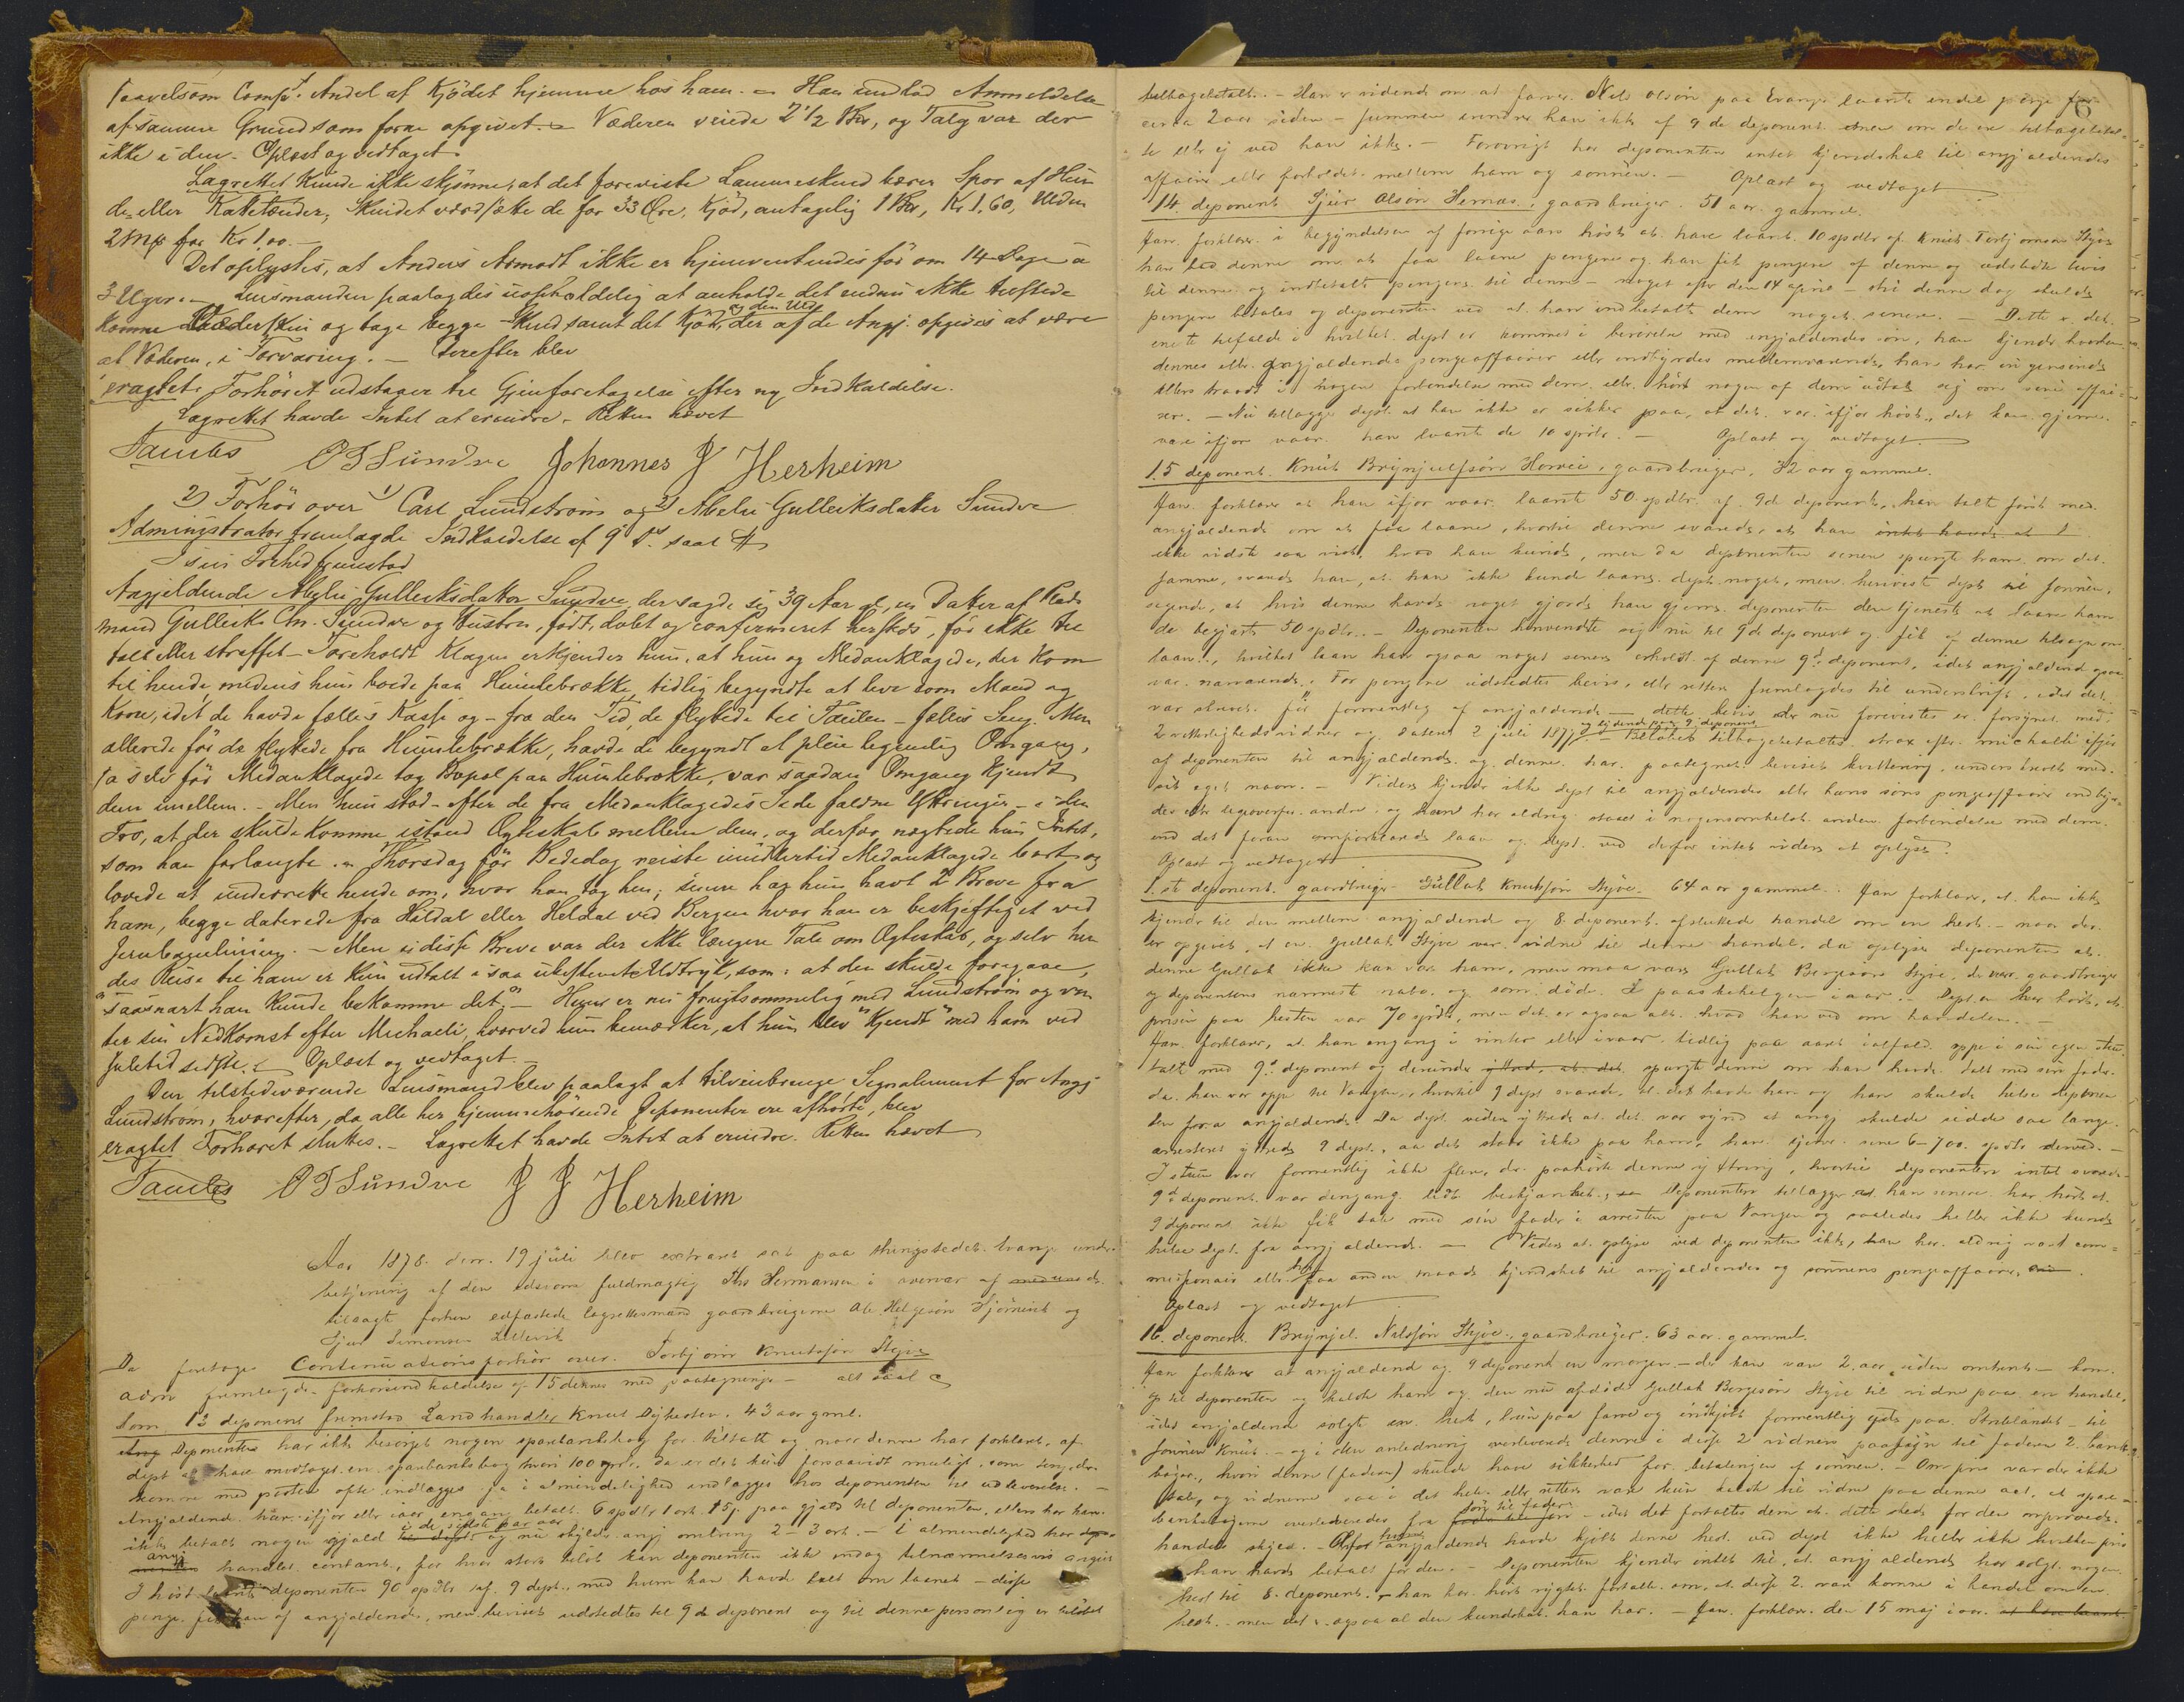 saavelsom Comp.ts Andel af Kjødet hjemme hos ham. — Han undlod Anmeldelse
af samme Grund som forne opgivet. — Væderen veiede 2 1/2 Bpd, og Talg var der
ikke i den. Oplæst og vedtaget
Lagrettet kunde ikke skjønne, at det foreviste Lammeskind bærer Spor af Hun
de- eller Kattetænder, Skindet værdsatte de for 33 Øre, Kjød, antagelig 1 Bpd, Kr 1,60, Ulden
2 Mk for Kr 1,00. —
Det oplystes, at Anders Aamodt ikke er hjemventendes før om 14 Dage a
3 Uger. — Lensmanden paalagdes uopholdelig at anholde det endnu ikke tilstede
komne Væderskin og tage begge Skind samt det Kjød, og den Uld der af de Angj. opgives at være
af Væderen, i Forvaring. — Derefter blev
eragtet: Forhøret udstaaer til Gjenforetagelse efter ny Indkaldelse.
Lagrettet havde Intet at erindre. Retten hævet
Daules O T Sundve Johannes J Herheim
2) Forhør over 1) Carl Lundstrøm og 2) Abelu Gulleiksdatter Sundve
Administrator fremlagde Indkaldelse af 9 ds. saal.
I sin Frihed fremstod
Angjeldende Abelu Gulleiksdatter Sundve, der sagde sig 39 Aar gl, en Datter af Plads
mand Gulleik Chr. Sundve og Hustru, født, døbt og confirmeret hersteds, før ikke til
talt eller straffet. — Foreholdt Klagen erkjender hun, at hun og Medanklagede, der kom
til hende medens hun boede paa Humlebrække, tidlig begyndte at leve som Mand og
Kone, idet de havde fælles Kasse og — fra den Tid, de flyttede til — fælles Seng. Men
allerede før de flyttede fra Humlebrække, havde de begyndt at pleie legemlig Omgang,
ja selv før Medanklagede tog Bopæl paa Humlebrække, var saadan Omgang Kjendt
dem imellem. — Men hun stod — efter de fra Medanklagedes Side faldne Yttringer — i den
Tro, at der skulde komme istand Ægteskab mellem dem, og derfor nægtede hun Intet,
som han forlangte. — Thorsdag før Bededag reiste imidlertid Medanklagede bort og
lovede at underrette hende om, hvor han tog hen; senere har hun havt 2 Breve fra
ham, begge daterede fra Hildal eller Heldal ved Bergen hvor han er beskjeftiget ved
Jernbanelinien. — Men i disse Breve var der ikke længere Tale om Ægteskab, og selv hen
des Reise til ham er kun udtalt i saa ubestemt Udtryk, som: at den skulde foregaae,
"saasnart han kunde bekomme det". — Hun er nu frugtsommelig med Lundstrøm og ven
ter sin Nedkomst efter Michaeli, hvorved hun bemærker, at hun blev "kjendt" med ham ved
Juletid sidste. — Oplæst og vedtaget. —
Den tilstedeværende Lensmand blev paalagt at tilveiebringe Signalement for Angj
Lundstrøm, hvorefter, da alle her hjemmehørende Deponenter ere afhørte, blev
eragtet Forhøret sluttes. — Lagrettet havde Intet at erindre. Retten hævet
Daules O T Sundve J J Herheim
Aar 1878. den 19 juli blev extraret sat paa thingstedet Evanger under
betjening af den edsvorne fuldmægtig Ths Hermansen i overvær af
tilsagte forhen edfæstede lagrettesmænd gaardbrugerne Ole Helgesøn Hjørnevik og
Sjur Simonsen Lillevik
Da foretoges Continuationsforhør over Torbjørn Knutsøn Styve
Adm fremlagde forhørsindkaldelse af 15 dennes med paategninger — alt saal.
Som 13 deponent fremstod Landhandler Knut Dyhester. 43 aar gml.
Deponenten har ikke besørget nogen sparebankbog for tiltalte og naar denne har forklaret, af
dept at have modtaget en sparebankbog hvori 100 spdlr, da er det kun forsaavidt muligt, som der
komme med posten ofte indlægges ja i almindelighed indlægges hos deponenten til udleverelse. —
Angjældende har ifjor eller iaar engang betalt 6 spdlr 1 ort 15 s. paa gjæld til deponenten, ellers har han
ikke betalt nogen gjæld i de sidste par aar og nu skylder angj omkring 2-3 ort. — I almindelighed har
angj handlet contant, for hvor stort beløb kan deponenten ikke endog tilnærmelsesvis angive
I høst laante deponenten 90 spdlr af 9 dept., med hvem han havde talt om laanet — disse
penge fik han af angjældende, men beviset udstedtes til 9de deponent og til denne person og er beløbet
tilbagebetalt. — Han er vidende om at farer Nils Olsøn paa Evanger laante endel penge for
circa 2 aar siden — summen erindrer han ikke af 9de deponent om de ere tilbagebetal-
te eller ej ved han ikke. — Forøvrigt har deponenten intet kjendskab til angjældendes
affairer eller forholdet mellem ham og sønnen. — Oplæst og vedtaget
14. deponent Sjur Olsøn Hernæs, gaardbruger. 51 aar gammel.
Han forklarer i begyndelsen af forrige aars høst at have laant 10 spdlr af Knut Torbjørnsøn Styve
han bad denne om at faa laane pengene og han fik pengene af denne og udstedte bevis
til denne og indbetalte pengene til denne — noget efter den 14 april — thi denne dag skulde
pengene betales og deponenten ved at han indbetalte dem noget senere. — Dette er det
eneste tilfælde i hvilket dept er kommet i berørelse med angjældendes søn, han kjender hverken
dennes eller angjældendes pengeaffairer eller indbyrdes mellemværende, han har ingensinde
ellers traadt i nogen forbindelse med dem eller hørt nogen af dem udtale sig om sine affai-
rer. — Nu tillægger dept. at han ikke er sikker paa, at det var ifjor høst, det kan gjerne
være ifjor vaar han laante de 10 spdlr. — Oplæst og vedtaget.
15 deponent Knut Brynjulfsøn Horvei, gaardbruger, 32 aar gammel.
Han forklarer at han ifjor vaar laante 50 spdlr af 9de deponent, han talte først med
angjældende om at faa laane, hvortil denne svarede, at han
ikke vidste saa vist, hvad han kunde, men da deponenten senere spurgte ham om det
samme, svarede han, at han ikke kunde laane dept. noget, men henviste dept til sønnen,
sigende, at hvis denne havde noget gjorde han gjerne deponenten den tjeneste at laane ham
de begjærte 50 spdlr. — Deponenten henvendte sig nu til 9de deponent og fik af denne tilsagn om
laan, hvilket laan han ogsaa noget senere erholdt af denne 9d. deponent, idet angjældende ogsaa
var nærværende. For pengene udstedtes bevis, eller rettere fremlagdes til underskrift, idet det
var skrevet før formentlig af angjældende — dette bevis der nu forevistes er forsynet med
2 vitterlighedsvidner og dateret 2 juli 1877 og lydende paa 9. deponent. — Beløbet tilbagebetaltes strax efter michaeli ifjor
af deponenten til angjældende og denne har paategnet beviset kvittering, underskrevet med
sit eget navn. — Videre kjender ikke dept til angjældendes eller hans søns pengeaffairer indbyr-
des eller ligeoverfor andre og han har aldrig staaet i nogensomhelst anden forbindelse med dem
end det foran omforklarede laan og dept. ved derfor intet videre at oplyse
Oplæst og vedtaget
1.ste deponent gaardbruger Gullak Knutsøn Styve. 64 aar gammel. Han forklarer, at han ikke
kjender til den mellem angjældende og 8. deponent afsluttede handel om en hest. — naar der
er opgivet, at en Gullak Styve var vidne til denne handel, da oplyser deponenten at
denne Gullak ikke kan være ham, men maa være Gullak Bergesøn Styve, der var gaardbruger
og deponentens nærmeste nabo og som døde paaskehelgen iaar. — Dept. har hørt, at
prisen paa hesten var 70 spdlr, men det er ogsaa alt hvad han ved om handelen. —
Han forklarer, at han engang i vinter eller ivaar tidlig paa aaret ialfald oppe i sin egen stue
talte med 9d deponent og derunder spurgte denne om han havde talt med sin fader
da han var oppe til Vangen, hvortil 9 dept svarede, at det havde han og han skulde hilse deponen-
ten fra angjældende. Da dept. videre yttrede at det var synd at angj skulde sidde saa længe
arresteret yttrede 9 dept., aa det staar ikke paa ham, han tjener sine 6-700 spdlr derved. —
I stuen var formentlig ikke flere, der paahørte denne yttring, hvortil deponenten intet svarede
9d deponent var dengang lidt beskjænket. Deponenten tillægger at han senere har hørt at
9 deponent ikke fik tale med sin fader i arresten paa Vangen og saaledes heller ikke kunde
hilse dept. fra angjældende. — Videre at oplyse ved deponenten ikke, han har aldrig været com-
misionair eller havt paa anden maade kjendskab til angjældendes og sønnens pengeaffairer.
Oplæst og vedtaget
16. deponent Brynjel Nilssøn Styve, gaardbruger. 63 aar gammel.
Han forklarer at angjældende og 9 deponent en morgen — det kan være 2 aar siden omtrent — kom
op til deponenten og kaldte ham og den nu afdøde Gullak Bergesøn Styve til vidne paa en handel,
idet angjældende solgte en hest, brun paa farve og indkjøbt formentlig ifjor paa Strilelandet — til
sønnen Knut — og i den anledning overleverede denne i disse 2 vidners paasyn til faderen 2 bank-
bøger, hvori denne (faderen) skulde have sikkerhed for betalingen af sønnen. — Om pris var der ikke
tale, og vidnerne saa i det hele eller rettere vare kun kaldt til vidne paa denne act, at spare-
bankbøgerne overleveredes fra søn til fader — idet det fortaltes dem at dette skede for den omprøvede
handels skyld. — Hvorfor angjældende havde kjøbt denne hest ved dept ikke heller ikke hvilken pris
han havde betalt for den. — Deponenten kjender intet til, at angjældende har solgt nogen
hest til 8. deponent. — han har hørt rygtet fortalt om, at disse 2 vare komne i handel om en
hest — men det er ogsaa al den kundskab han har. — Han forklarer den 15 maj iaar